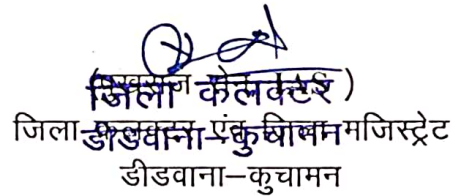 (पुखराज सेन IAS)
जिला कलेक्टर
जिला कलक्टर एवं जिला मजिस्ट्रेट
डीडवाना-कुचामन
डीडवाना–कुचामन